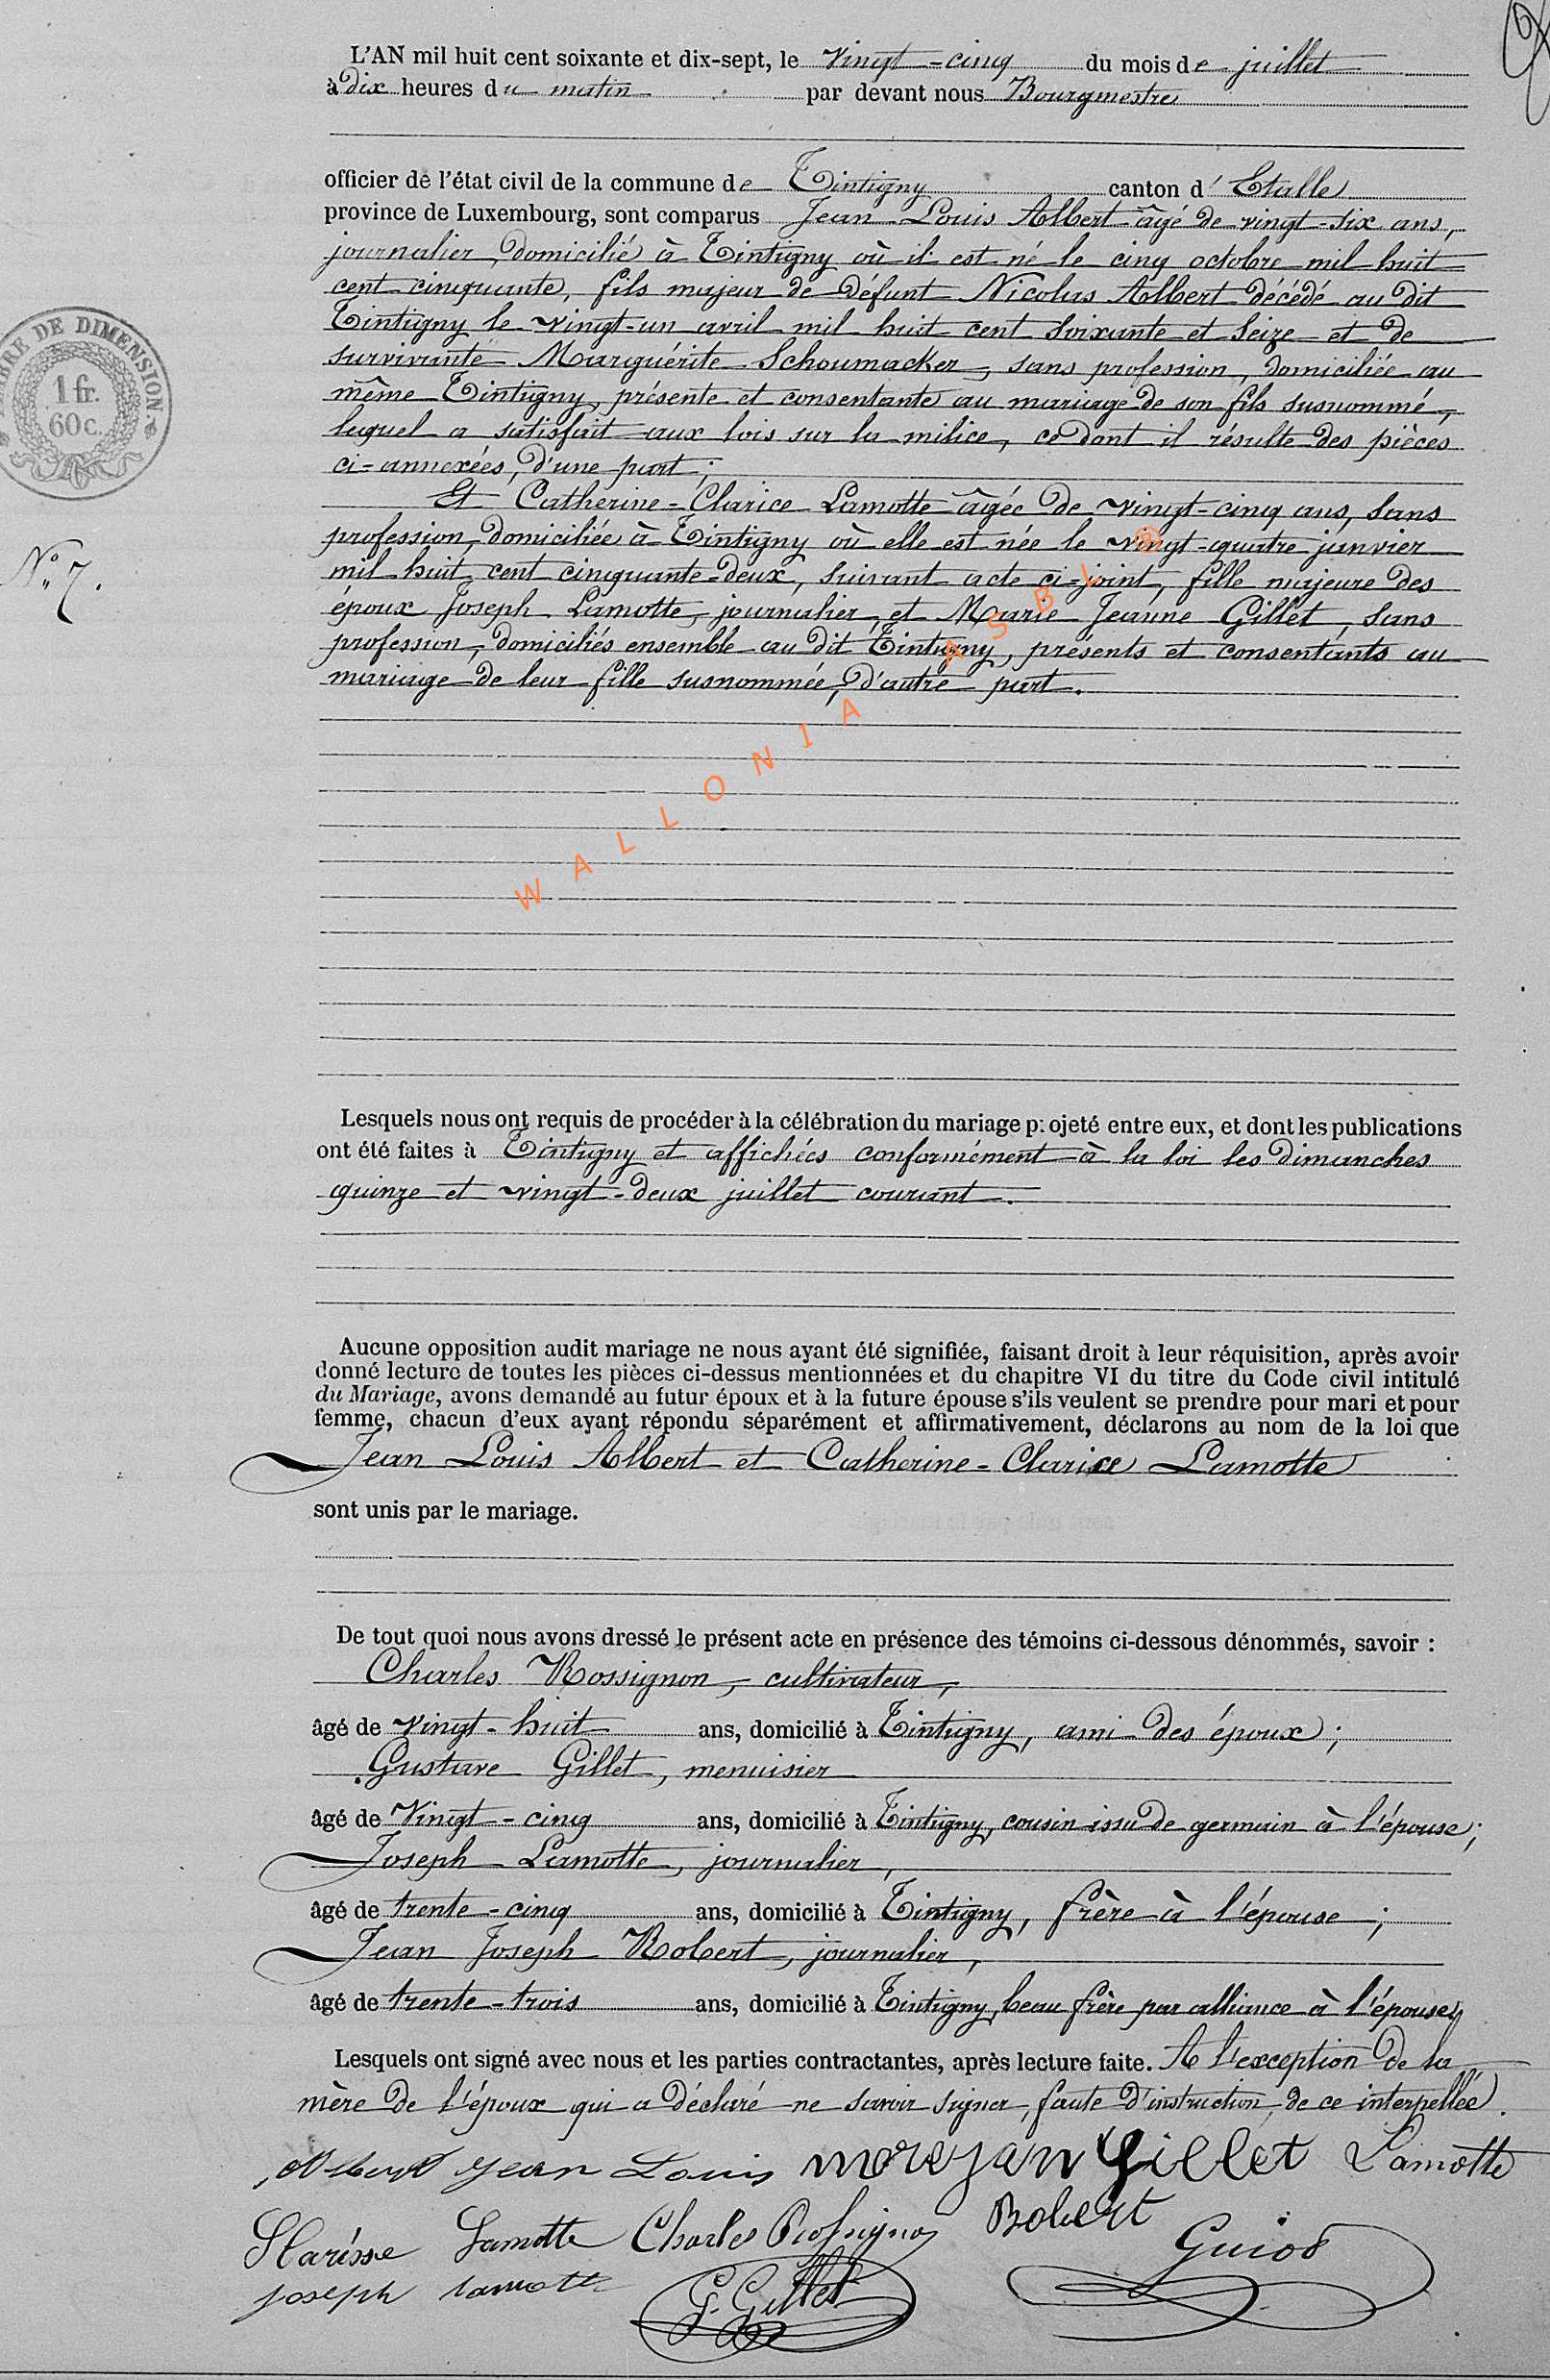 L'AN mil huit cent soixante et dix-sept, le vingt-cinq du mois de juillet
à dix heures du matin par devant nous Bourgmestre
officier de l'état civil de la commune de Tintigny canton d'Etalle
province de Luxembourg, sont comparus Jean Louis Albert âgé de vingt-six ans,
journalier, domicilié à Tintigny où il est né le cinq octobre mil huit
cent cinquante, fils majeur de défunt Nicolas Albert décédé au dit
Tintigny le vingt-un avril mil huit cent soixante et seize et de
survivante Marguérite Schoumacker, sans profession, domiciliée au
même Tintigny, présente et consentante au mariage de son fils susnommé,
lequel a satisfait aux lois sur la milice, ce dont il résulte des pièces
ci-annexées, d'une part;
TIMBRE DE DIMENSION
1 fr.
60 c.
Et Catherine-Clarice Lamotte âgée de vingt-cinq ans, sans
profession, domiciliée à Tintigny où elle est née le vingt-quatre janvier
N° 7.
mil huit cent cinquante-deux, suivant acte ci-joint, fille majeure des
époux Joseph Lamotte, journalier, et Marie Jeanne Gillet, sans
profession, domiciliés ensemble au dit Tintigny, présents et consentants au
mariage de leur fille susnommée, d'autre part.
WALLONIA ASBL ®
Lesquels nous ont requis de procéder à la célébration du mariage projeté entre eux, et dont les publications
ont été faites à Tintigny et affichées conformément à la loi les dimanches
quinze et vingt-deux juillet courant.
Aucune opposition audit mariage ne nous ayant été signifiée, faisant droit à leur réquisition, après avoir
donné lecture de toutes les pièces ci-dessus mentionnées et du chapitre VI du titre du Code civil intitulé
du Mariage, avons demandé au futur époux et à la future épouse s'ils veulent se prendre pour mari et pour
femme, chacun d'eux ayant répondu séparément et affirmativement, déclarons au nom de la loi que
Jean Louis Albert et Catherine-Clarice Lamotte
sont unis par le mariage.
De tout quoi nous avons dressé le présent acte en présence des témoins ci-dessous dénommés, savoir :
Charles Rossignon, cultivateur,
âgé de vingt-huit ans, domicilié à Tintigny, ami des époux;
Gustave Gillet, menuisier
âgé de Vingt-cinq ans, domicilié à Tintigny, cousin issu de germain à l'épouse;
Joseph Lamotte, journalier,
âgé de trente-cinq ans, domicilié à Tintigny, frère à l'épouse;
Jean Joseph Robert, journalier,
âgé de trente-trois ans, domicilié à Tintigny, beau frère par alliance à l'épouse.
Lesquels ont signé avec nous et les parties contractantes, après lecture faite. A l'exception de la
mère de l'époux qui a déclaré ne savoir signer, faute d'instruction, de ce interpellée.
Albert Jean Louis more jan Gillet Lamotte
Clarisse Lamotte Charles Rossignon Robert Guiot
Joseph lamotte G. Gillet